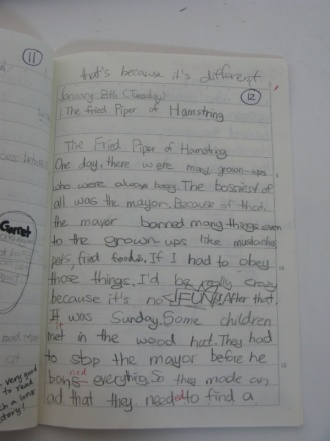 11
that's because it's different
January 8th (Tuesday)
12
The fried Piper of Hamstring
The Fried Piper of Hamstring
One day, there were many grown-ups
who were always bossy. The bossiest of
all was the mayor. Because of that,
the mayor banned many things even
to the grown-ups like mustaches
pets, fried foods. If I had to obey
those things. I'd be really crazy
because it's no FUN! After that.
It was Sunday. Some children
met in the wood hut. They had
to stop the mayor before he
banned everything. So they made an
ad that they needed to find a
Garret
very good
to read
such a long
story!